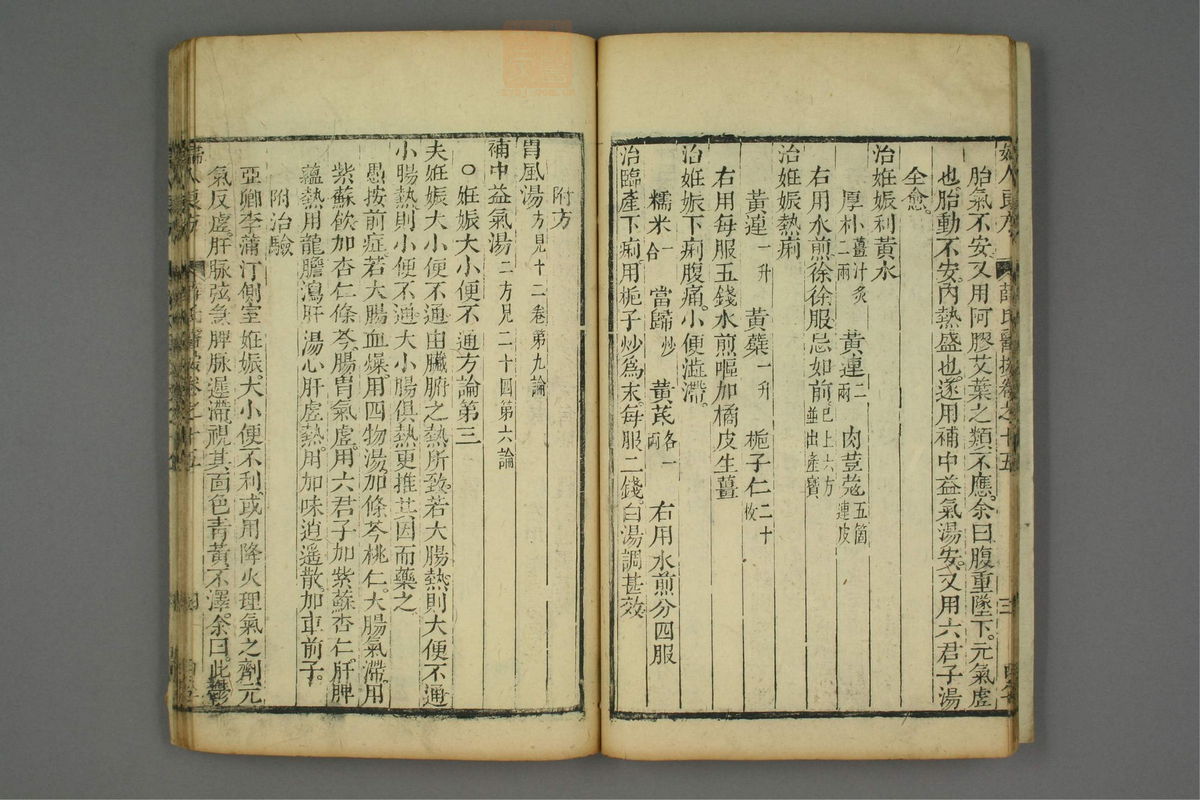 胎氣不安又用阿膠艾葉之類不應余曰腹重墜下元氣虛
也胎動不安內熱盛也遂用補中益氣湯安又用六君子湯
全愈
治姙娠利黃水
厚朴二兩薑汁炙 黃連二兩 肉荳蔻五箇連皮
右用水煎徐徐服忌如前已上六方並出產寶
治姙娠熱痢
黃連一升 黃蘗一升 梔子仁二十枚
右用每服五錢水煎嘔加橘皮生薑
治姙娠下痢腹痛小便澁滯
糯米一合 當歸炒 黃芪各一兩 右用水煎分四服
治臨產下痢用梔子炒爲末每服二錢白湯調甚效
附方
胃風湯方見十二卷第九論
補中益氣湯二方見二十四第六論
○姙娠大小便不通方論第三
夫姙娠大小便不通由臟腑之熱所致若大腸熱則大便不通
小腸熱則小便不通大小腸俱熱更推其因而藥之
愚按前症若大腸血燥用四物湯加條芩桃仁大腸氣滯用
紫蘇飲加杏仁條芩腸胃氣虛用六君子加紫蘇杏仁肝脾
蘊熱用龍膽瀉肝湯心肝虛熱用加味逍遙散加車前子
附治驗
亞卿李蒲汀側室姙娠大小便不利或用降火理氣之劑元
氣反虛肝脈弦急脾脈遲滯視其面色靑黃不澤余曰此鬱